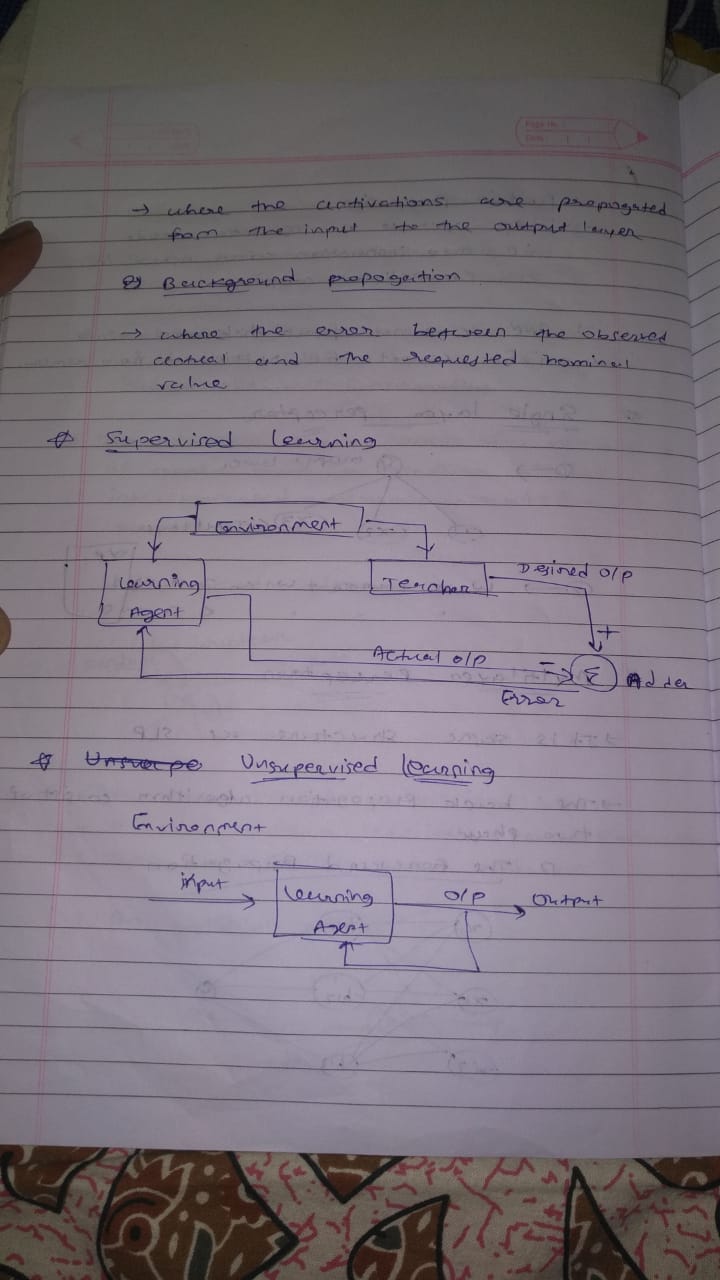 Page No.
Date
→ where the activations are propogated
from the input to the output layer
2) Background propogation
→ where the error between the observed
actual and the requested nominal
value
Supervised learning
Environment
Learning
Agent
Teacher
Desired O/P
+
Actual o/p
-
Σ
Adder
Error
Unsupervised learning
Environment
input
Learning
Agent
O/P
Output